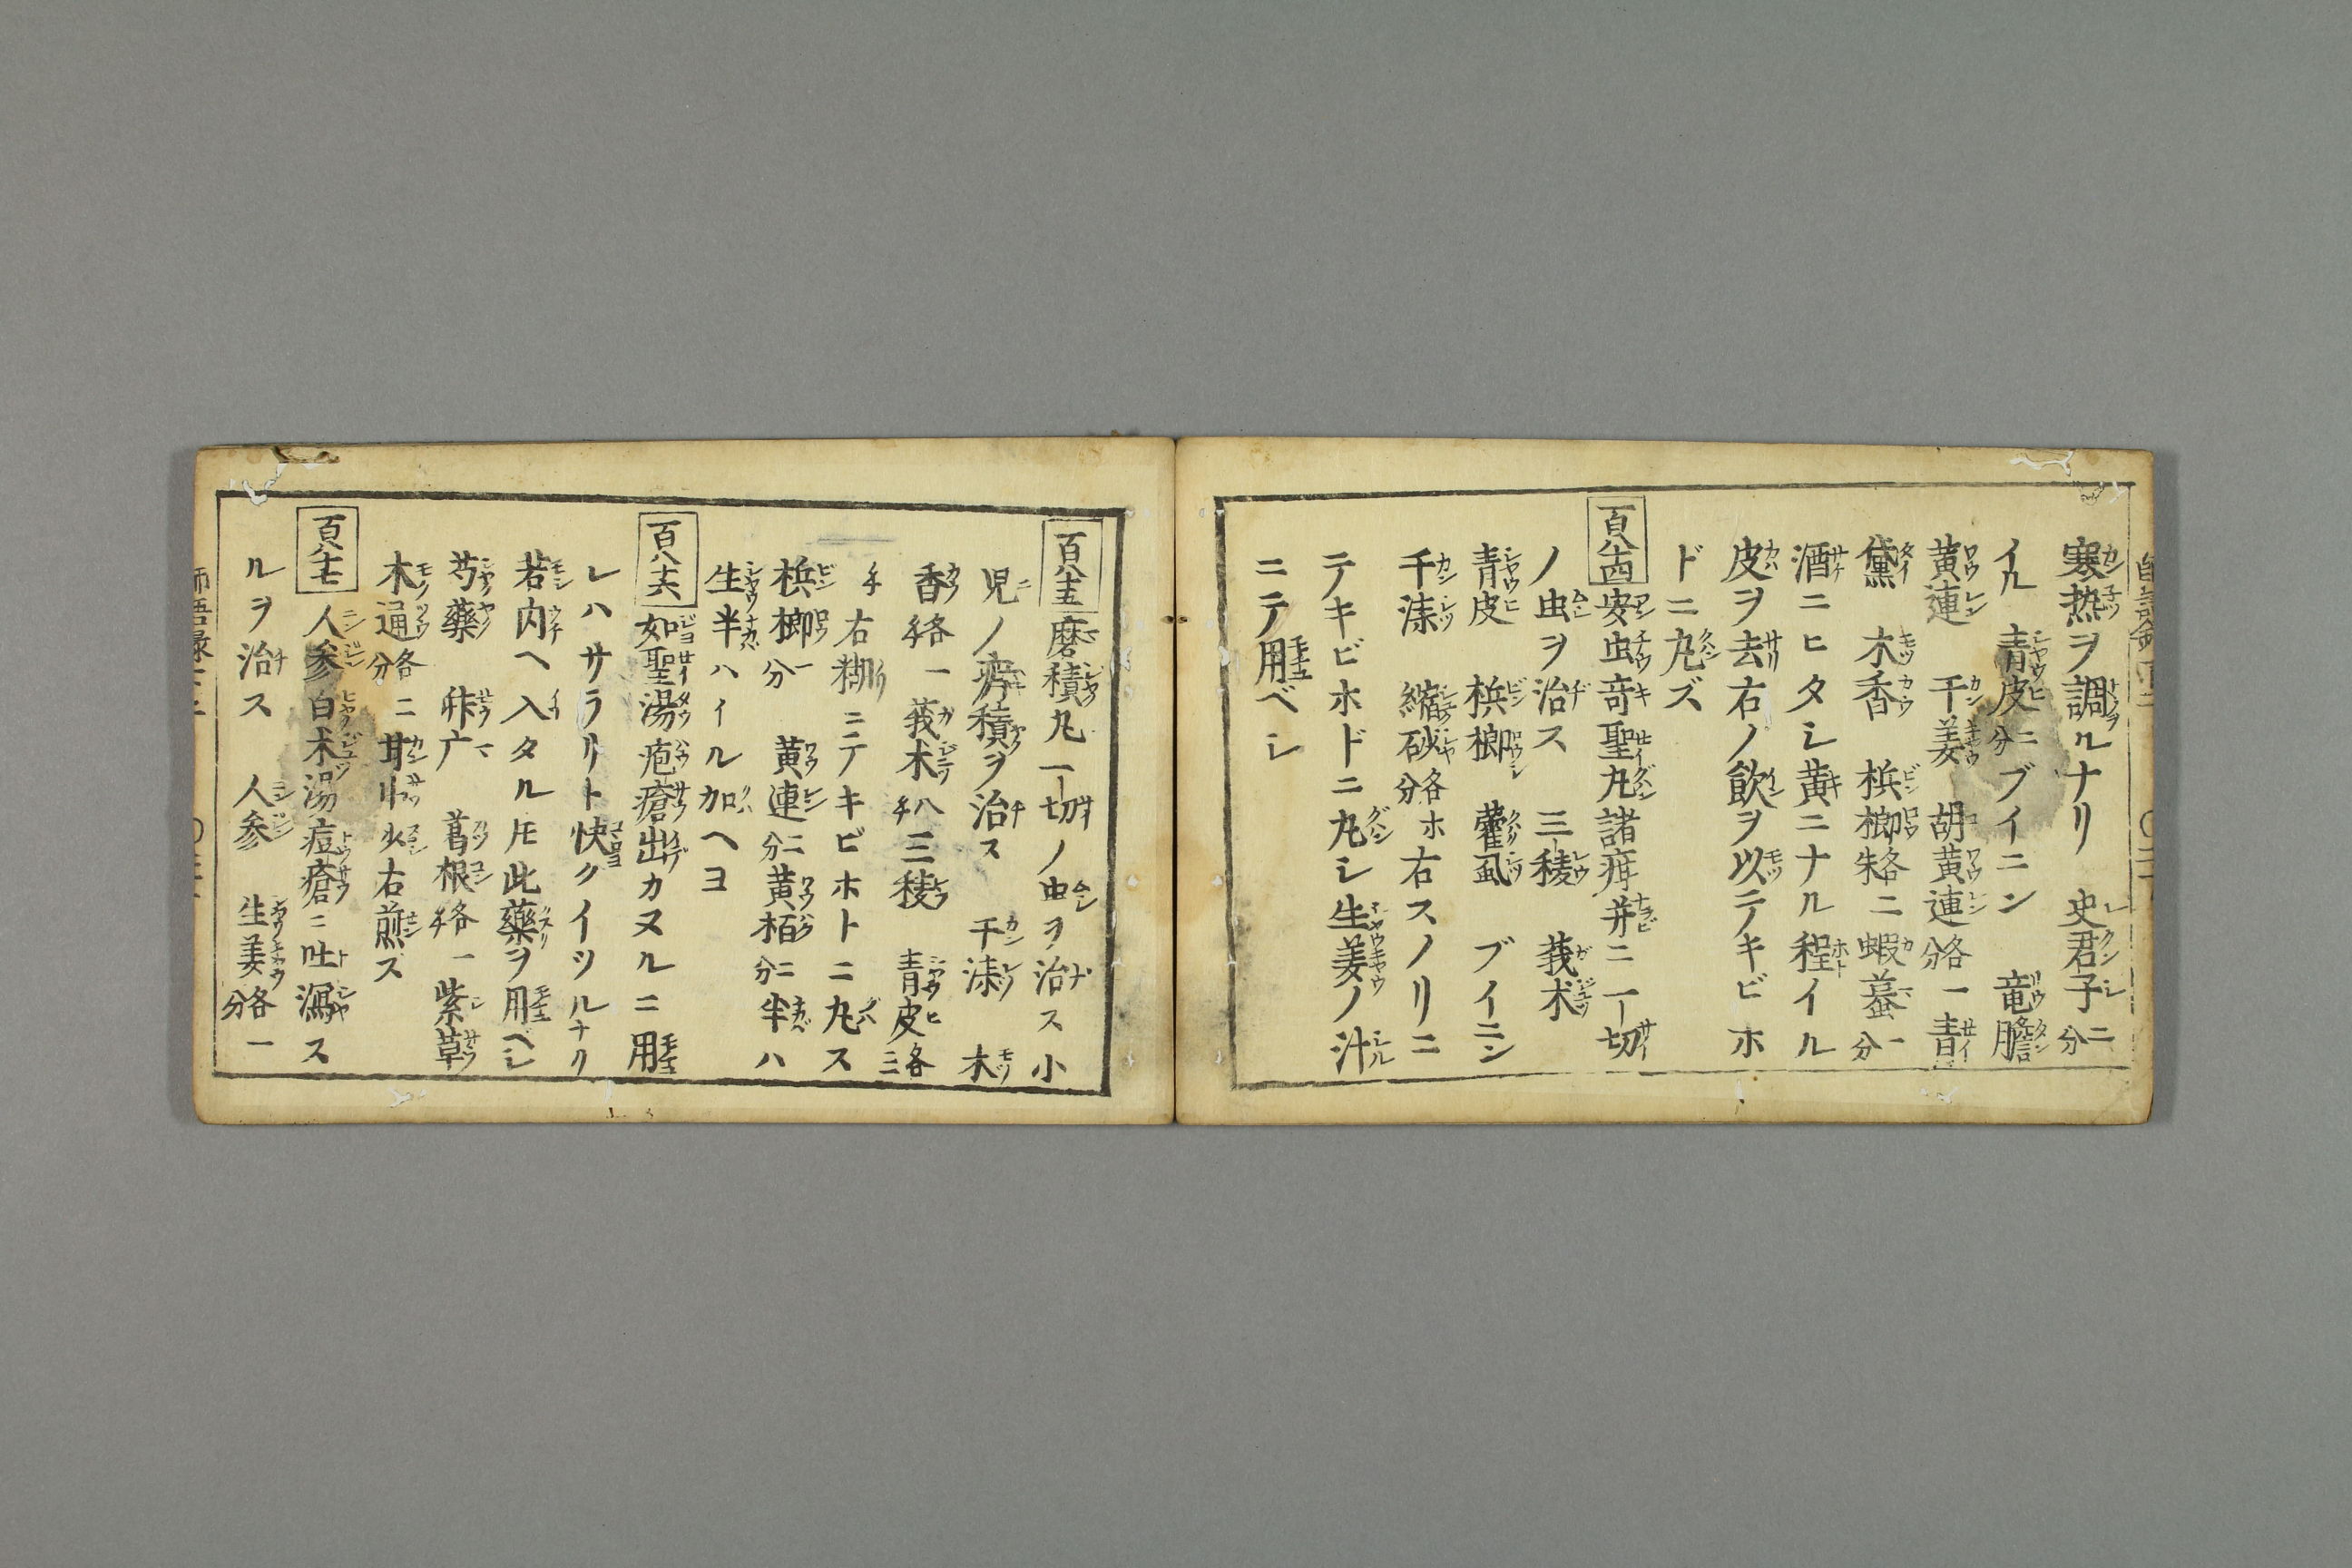 寒热ヲ調ルナリ 史君子二分
イル 青皮二分 ブイニン 竜膽
黄連 干姜 胡黄連各一分 青
黛 木香 梹榔各二朱 蝦蟇一分
酒ニヒタシ黄ニナル程イル
皮ヲ去右ノ飲ヲ以テキビホ
ドニ丸ズ
百八十四 安虫奇聖丸諸疳并ニ一切
ノ虫ヲ治ス 三稜 莪朮
青皮 梹榔 藿虱 ブイニン
干漆 縮砂各分ホ右スノリニ
テキビホドニ丸シ生姜ノ汁
ニテ用ベシ
百八十五 磨積丸一切ノ虫ヲ治ス小
児ノ癖積ヲ治ス 干漆 木
香各一 莪朮八 三稜 青皮各三
右糊ニテキビホトニ丸ス
梹榔一分 黄連二分 黄栢二分半ハ
生半ハイル加ヘヨ
百八十六 如聖湯疱瘡出カヌルニ用
レハサラリト快クイツルナリ
若内ヘ入タル𪜈此藥ヲ用ベシ
芍藥 升广 葛根各一 紫草
木通各二分 甘艸少右煎ズ
百八十七 人参白朮湯痘瘡ニ吐瀉ス
ルヲ治ス 人参 生姜各一分